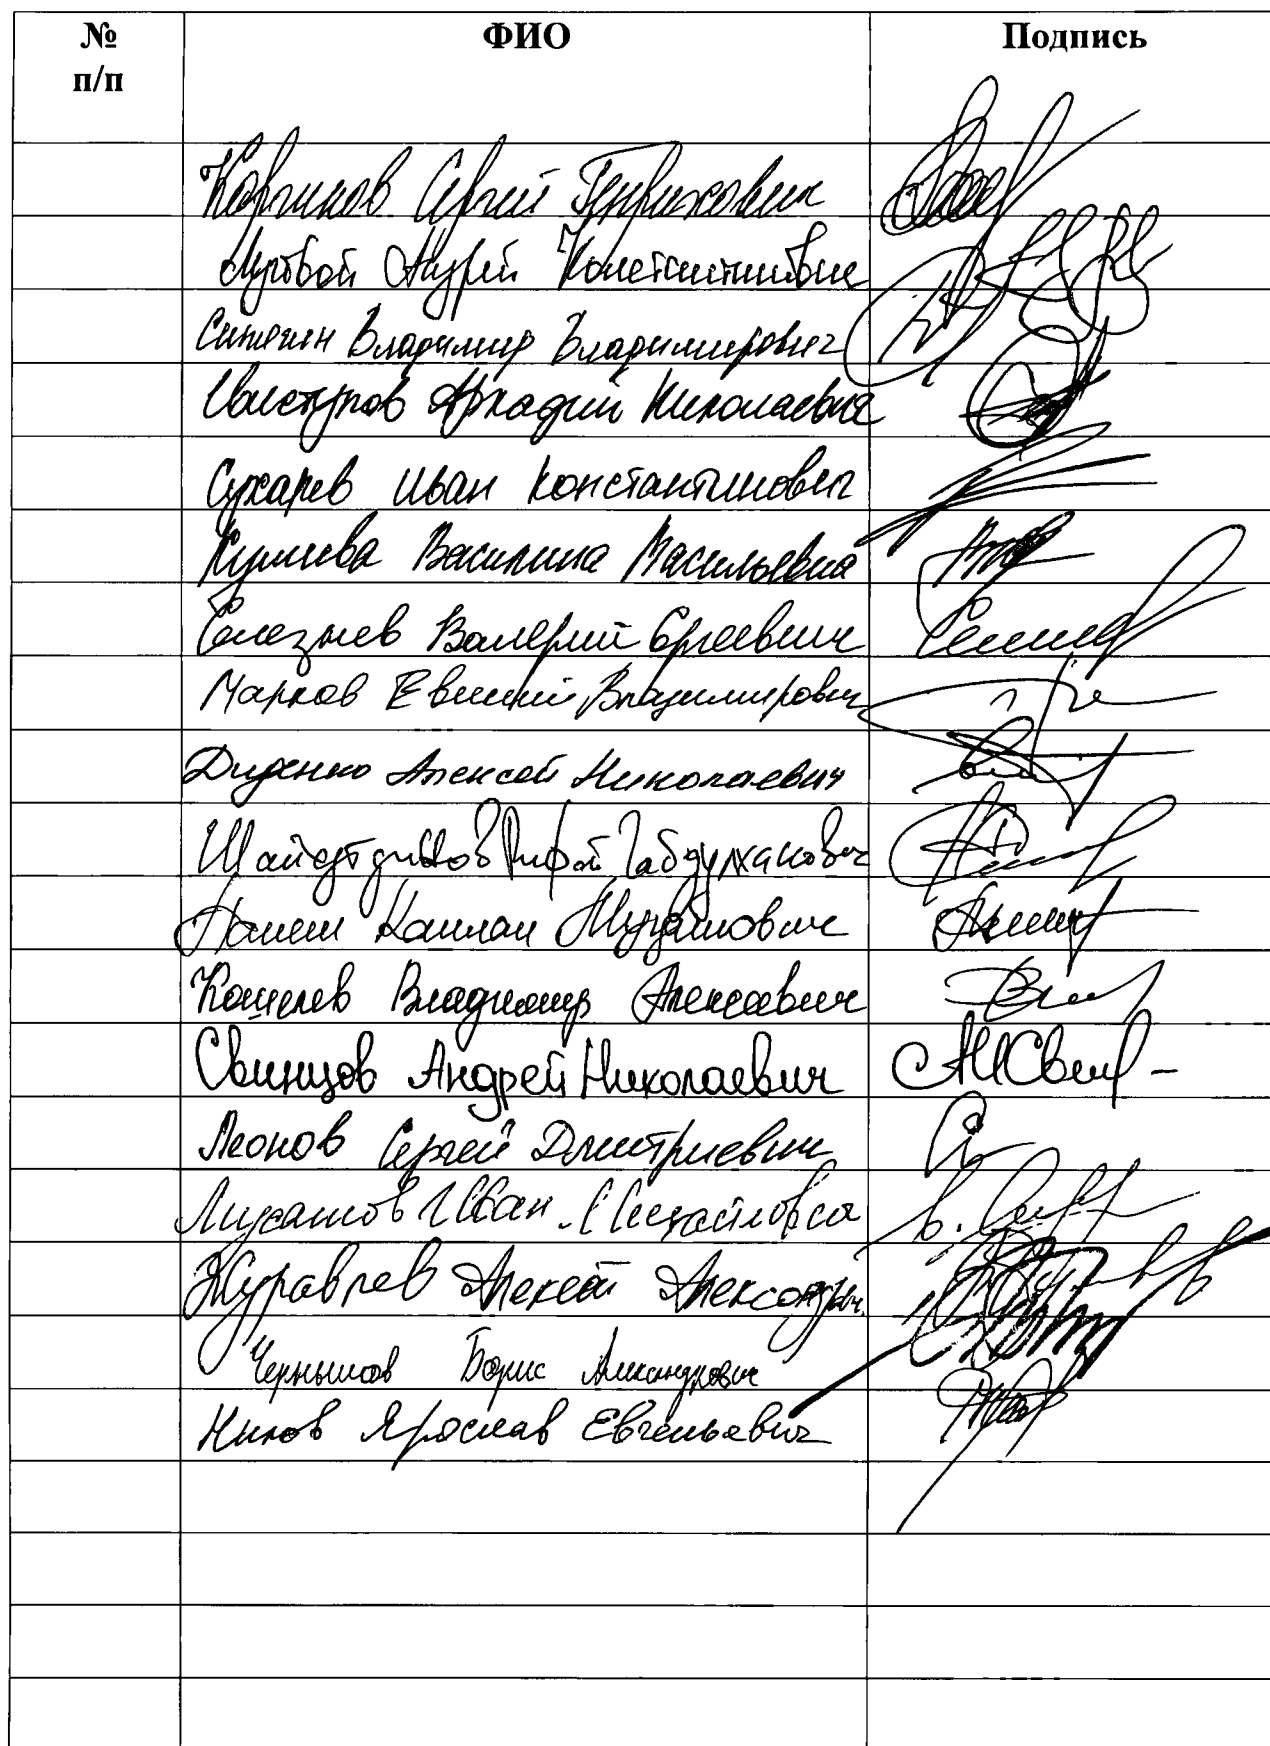 № п/п ФИО Подпись
Каргинов Сергей Генрихович
Луговой Андрей Константинович
Синягин Владимир Владимирович
Свистунов Аркадий Николаевич
Сухарев Иван Константинович
Кулиева Василина Васильевна
Селезнев Валерий Сергеевич
Марков Евгений Владимирович
Диденко Алексей Николаевич
Шайхутдинов Рифат Габдулхакович
Панеш Каплан Мугдинович
Кошелев Владимир Алексеевич
Свинцов Андрей Николаевич
Леонов Сергей Дмитриевич
Мусатов Иван Михайлович
Журавлев Алексей Александрович
Чернышов Борис Александрович
Нилов Ярослав Евгеньевич